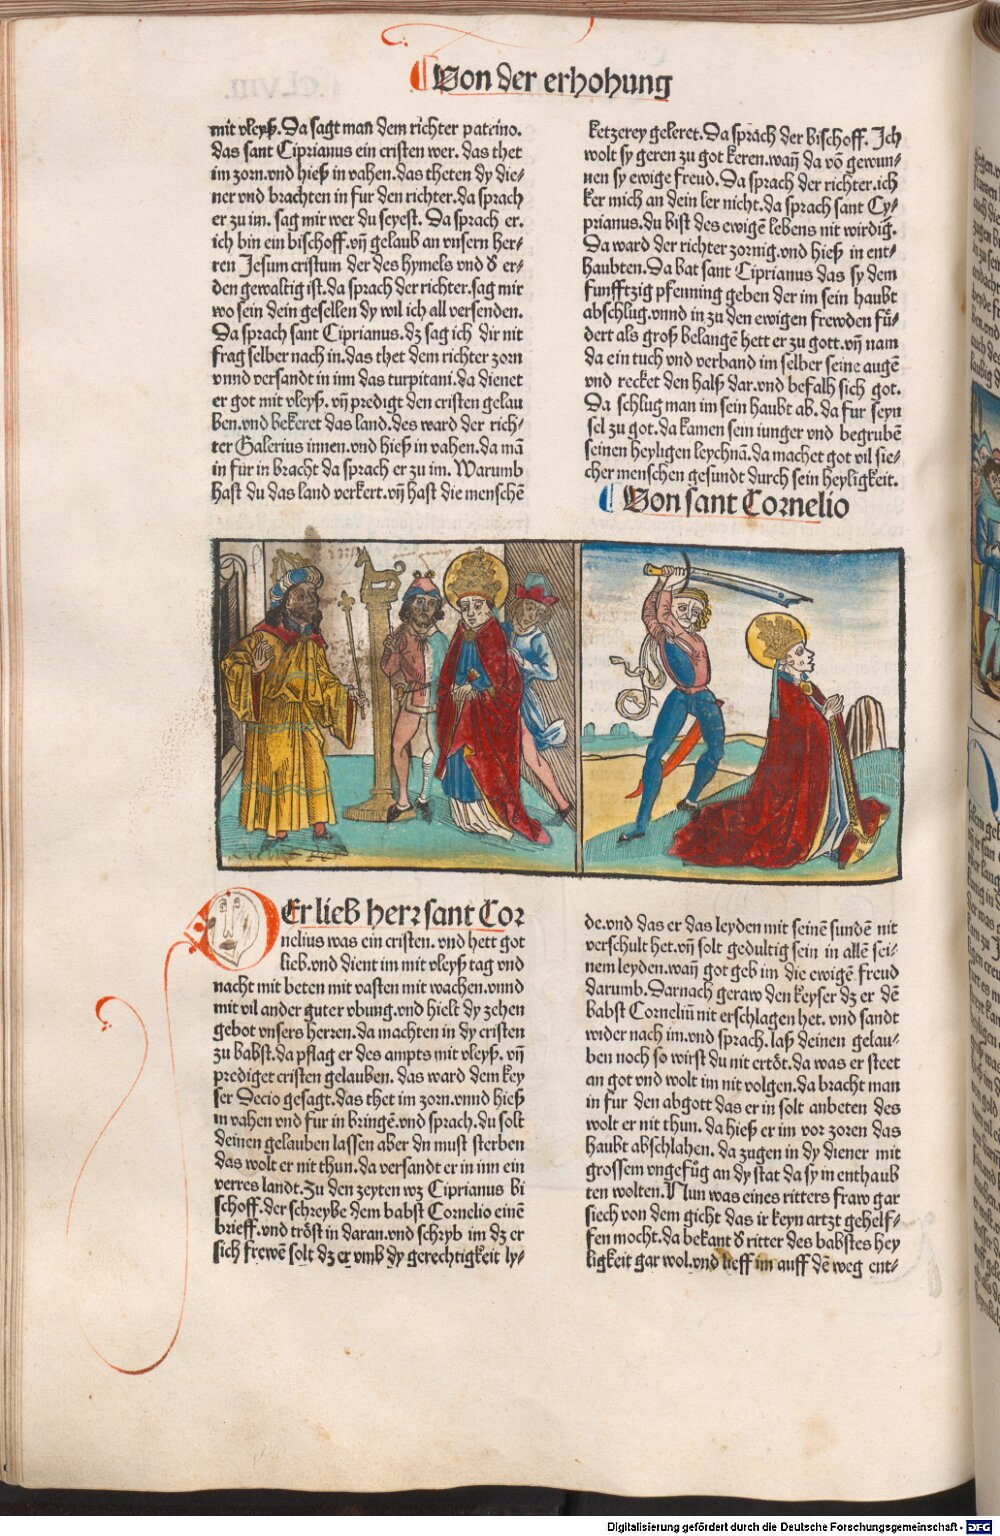 Von der erhohung
mit vleyß. Da sagt man dem richter patrino.
das sant Ciprianus ein cristen wer. das thet
im zorn. vnd hieß in vahen. das theten dy die⸗
ner vnd brachten in fur den richter. da sprach
er zu im. sag mir wer du seyest. Da sprach er.
ich bin ein bischoff. vn̄ gelaub an vnsern her⸗
ren Jesum cristum der des hymels vnd d̕ er⸗
den gewaltig ist. da sprach der richter. sag mir
wo sein dein gesellen dy wil ich all versenden.
Da sprach sant Ciprianus. dz sag ich dir nit
frag selber nach in. das thet dem richter zorn
vnnd versandt in inn das turpitani. da dienet
er got mit vleyß. vn̄ predigt den cristen gelau
ben. vnd bekeret das land. des ward der rich⸗
ter Galerius innen. vnd hieß in vahen. da mā
in für in bracht da sprach er zu im. Warumb
hast du das land verkert. vn̄ hast die menschē
ketzerey geleret. Da sprach der bischoff. Ich
wolt sy geren zu got keren. wan̄ da vō gewun⸗
nen sy ewige freud. Da sprach der richter. ich
ker mich an dein ler nicht. da sprach sant Cy⸗
prianus. du bist des ewigē lebens nit wirdig.
Da ward der richter zornig. vnd hieß in ent⸗
haubten. Da bat sant Ciprianus das sy dem
funfftzig pfenning geben der im sein haubt
abschlug. vnnd in zu den ewigen frewden fü⸗
dert als groß belangē hett er zu gott. vn̄ nam
da ein tuch vnd verband im selber seine augē
vnd recket den halß dar. vnd befalh sich got.
Da schlug man im sein haubt ab. da fur seyn
sel zu got. da kamen sein iunger vnd begrubē
seinen heyligen leychnā. da machet got vil sie⸗
cher menschen gesundt durch sein heyligkeit.
Von sant Cornelio
DEr lieb herr sant Cor
nelius was ein cristen. vnd hett got
lieb. vnd dient im mit vleyß tag vnd
nacht mit beten mit vasten mit wachen. vnnd
mit vil ander guter vbung. vnd hielt dy zehen
gebot vnsers herren. da machten in dy cristen
zu babst. da pflag er des ampts mit vleyß. vn̄
prediget cristen gelauben. das ward dem key
ser Decio gesagt. das thet im zorn. vnnd hieß
in vahen vnd fur in bringē. vnd sprach. du solt
deinen gelauben lassen aber dn must sterben
das wolt er nit thun. da versandt er in inn ein
verres landt. Zu den zeyten wz Ciprianus bi
schoff. der schreybe dem babst Cornelio einē
brieff. vnd tröst in daran. vnd schryb im dz er
sich frewē solt dz er vmb dy gerechtigkeit ly⸗
de. vnd das er das leyden mit seinē sundē nit
verschult het. vn̄ solt gedultig sein in allē sei⸗
nem leyden. wan̄ got geb im die ewigē freud
darumb. Darnach geraw den keyser dz er dē
babst Corneliū nit erschlagen het. vnd sandt
wider nach im. vnd sprach. laß deinen gelau⸗
ben noch so wirst du nit ertöt. da was er steet
an got vnd wolt im nit volgen. da bracht man
in fur den abgott das er in solt anbeten des
wolt er nit thun. da hieß er im vor zoren das
haubt abschlahen. da zugen in dy diener mit
grossem vngefüg an dy stat da sy in enthaub
ten wolten. Nun was eines ritters fraw gar
siech von dem gicht das ir keyn artzt gehelf⸗
fen mocht. da bekant d̕ ritter des babstes hey
ligkeit gar wol. vnd lieff im auff dē weg ent⸗
Digitalisierung gefördert durch die Deutsche Forschungsgemeinschaft - DFG